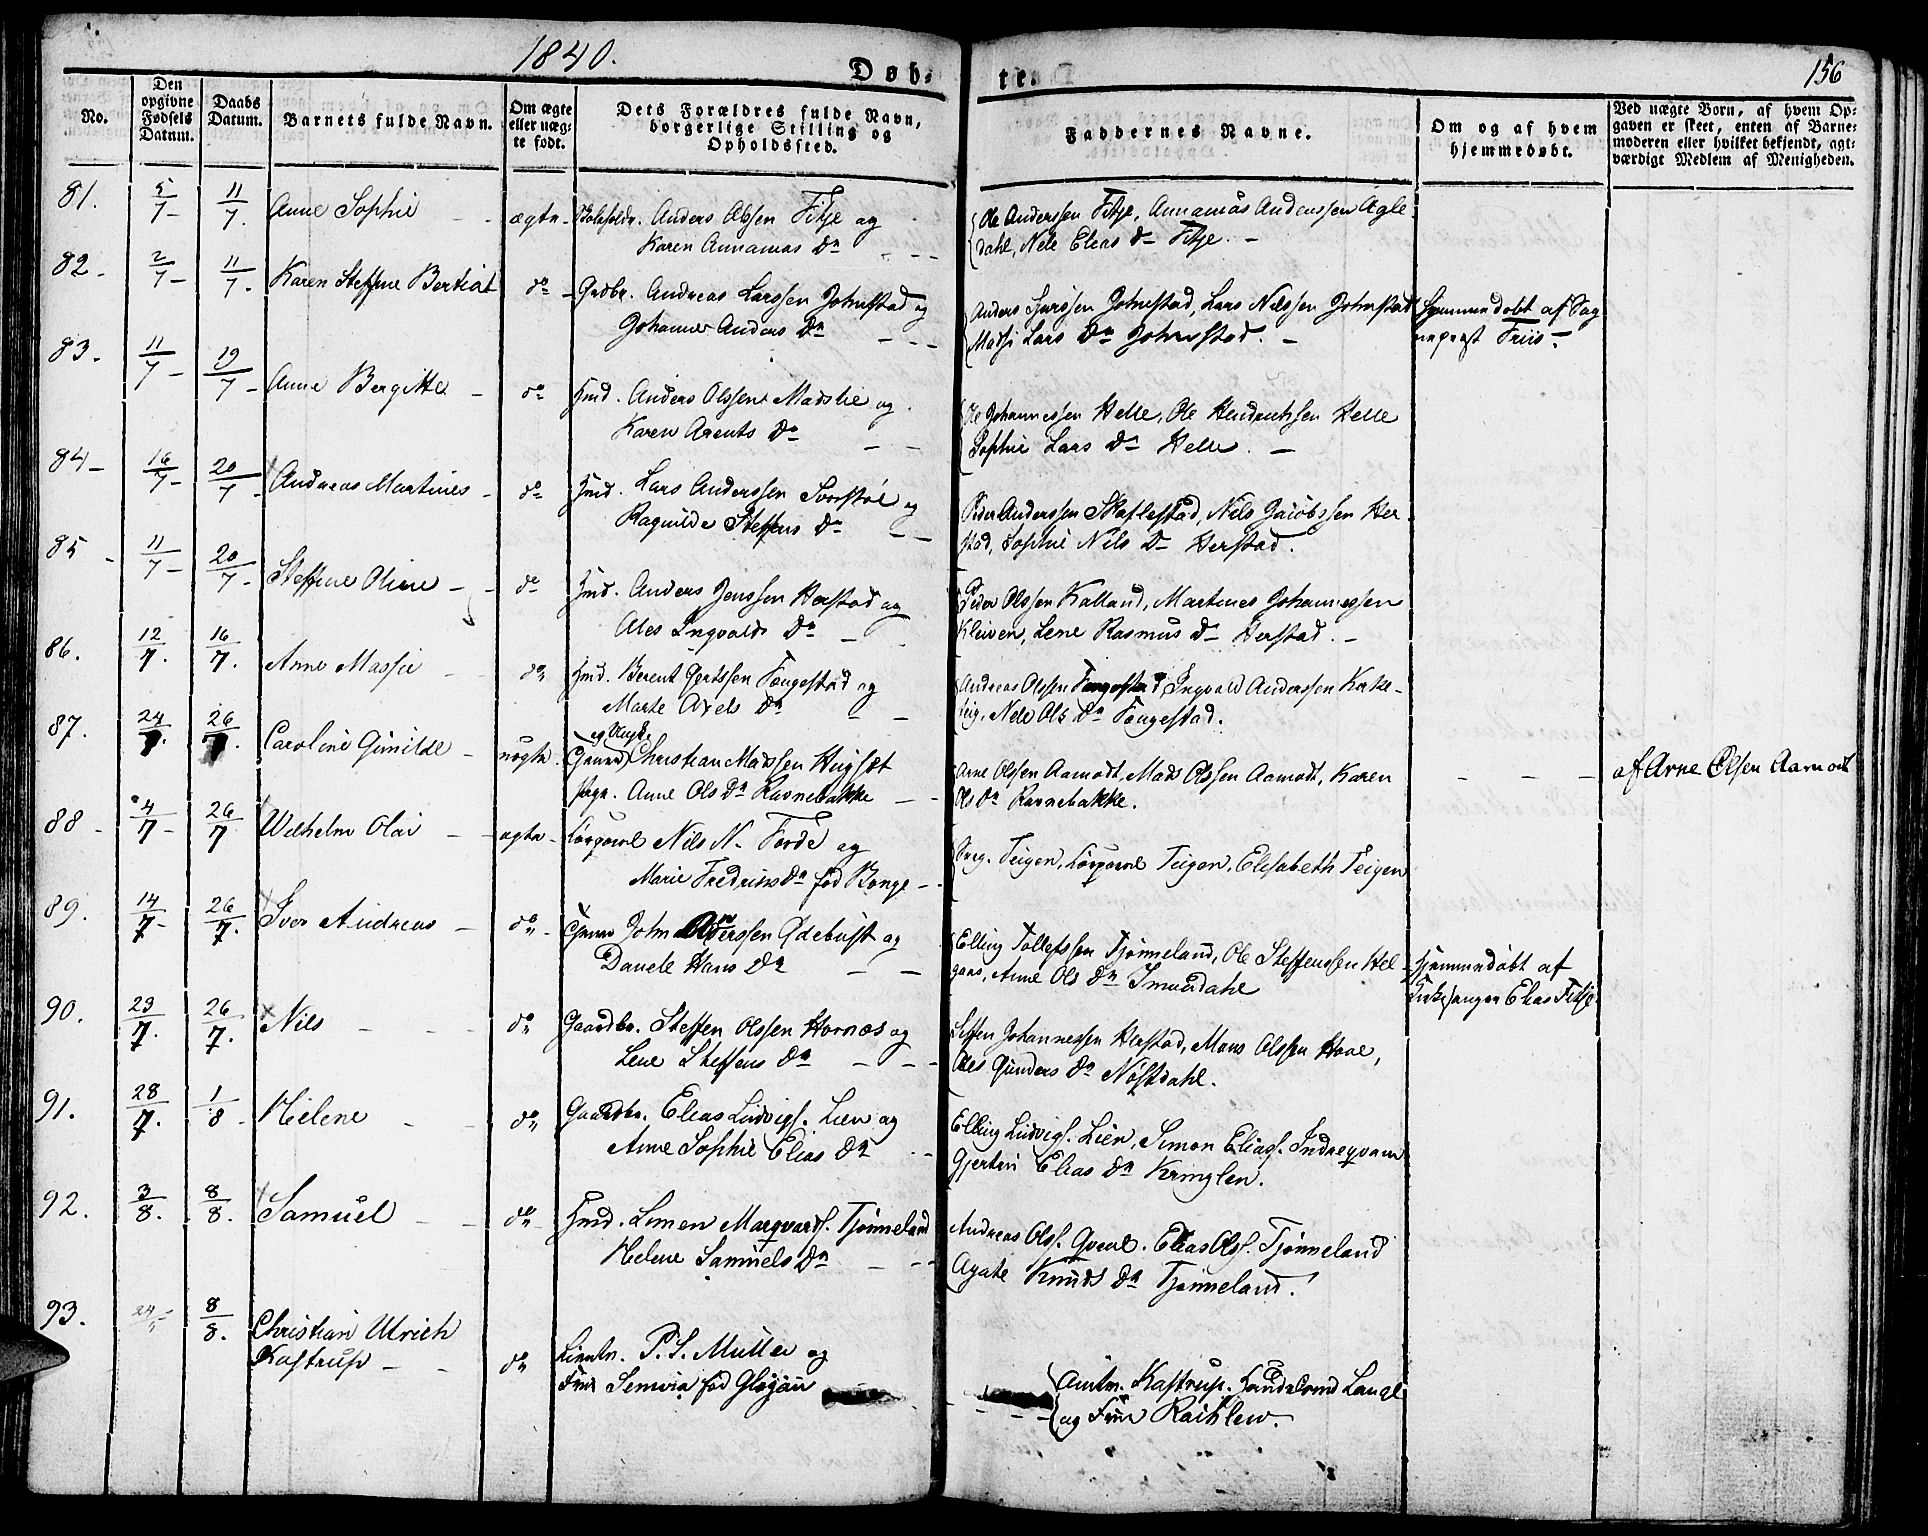 1840.
Døb-
te.
156
No.
Den opgivne Fødsels Datum.
Daabs Datum.
Barnets fulde Navn.
Om ægte eller uæg- te født.
Dets Forældres fulde Navn, borgerlige Stilling og Opholdssted.
Faddernes Navne.
Om og af hvem hjemmedøbt.
Ved uægte Børn, af hvem Op- gaven er skeet, enten af Barne- moderen eller hvilket bekjendt, agt- værdigt Medlem af Menigheden.
81. 5/7 11/7. Anne Sophie ægte Anders Olssen Fitje og
Karen Annamas Dr
Ole Anderssen Fitje, Annamås Anderssen Agle-
dahl, Nele Elias Dr Fitje.
82. 2/7 11/7. Karen Steffine Bertiat do Grdbr. Andreas Larssen Johnstad og
Johanne Anders Dr
Anders Larssen Johnstad, Lars Nilssen Johnstad
Madsi Lars Dr Johnstad.
Hjemmedøbt af Sog
nepræst Friis
83. 11/7 19/7 Anne Bergitte do Hmd. Anders Olssen Madslie og
Karen Arents Dr
Ole Johannessen Helle, Ole Hendrichsen Helle
Sophie Lars Dr Helle.
84 16/7 20/7 Andreas Martines do Hmd. Lars Anderssen og
Ragnilde Steffens Dr
Peder Anderssen Skaflestad, Nils Jacobssen Her-
stad, Sophie Nils Dr Herstad.
85 11/7 20/7 Steffine Oline do Hmd. Anders Jenssen Herstad og
Ales Ingvalds Dr
Peder Olssen Kalland, Martines Johannessen
Kleiven, Lene Rasmus Dr Herstad.
86. 12/7. 16/7. Anne Massie do Hmd. Berent Gertssen Fongestad og
Marte Axels Dr
Andreas Olssen Fongestad, Ingvald Anderssen Kirke-
teig, Nele Ols Dr Fongestad.
87. 24/7. 26/7. Caroline Gunilde uægte Christian Madssen Hugset
Pige. Anne Ols Dr Ravnebakke
Arne Olssen Aamodt, Mads Olssen Aamodt, Karen
Ols Dr Ravnebakke.
af Arne Olsen Aamodt
88 4/7 26/7 Wilhelm Olai ægte Corporal Nils N. Førde og
Marie Fredriks Dr fød Bonge
Serg. Teigen, Corporal Teigen, Elisabeth Teigen
89. 14/7 26/7. Iver Andreas do John Anderssen Ødebust og
Danele Hans Dr
Elling Tollefssen Tjønneland, Ole Steffenssen Hel-
gaas, Anne Ols Dr
Hjemmedøbt af
Kirkesanger Elias Fitje
90. 23/7. 26/7. Nils do Gaardbr. Steffen Olssen Hornæs og
Lene Steffens Dr
Steffen Johannessen Herstad, Mons Olssen Hove,
Ales Gunders Dr Nøstdahl.
91. 28/7. 1/8 Helene do Gaardbr. Elias Ludvigs. Lien og
Anne Sophie Elias Dr
Elling Ludvigs. Lien, Simon Elias. Indreqvam
Gjertrü Elias Dr Kringlen.
92. 3/8. 8/8. Samuel do Hmd. Simen Marqvards. Tjønneland
Helene Samuels Dr
Andreas Ols. Qvaal. Elias Ols. Tjønneland
Agate Knuds Dr Tjønneland.
93. 8/8. Christian Ulrich
Kastrup do Lieutn. P. S. Müller og
Frue fød Gløgau
Amtm. Kastrup.
og Frue